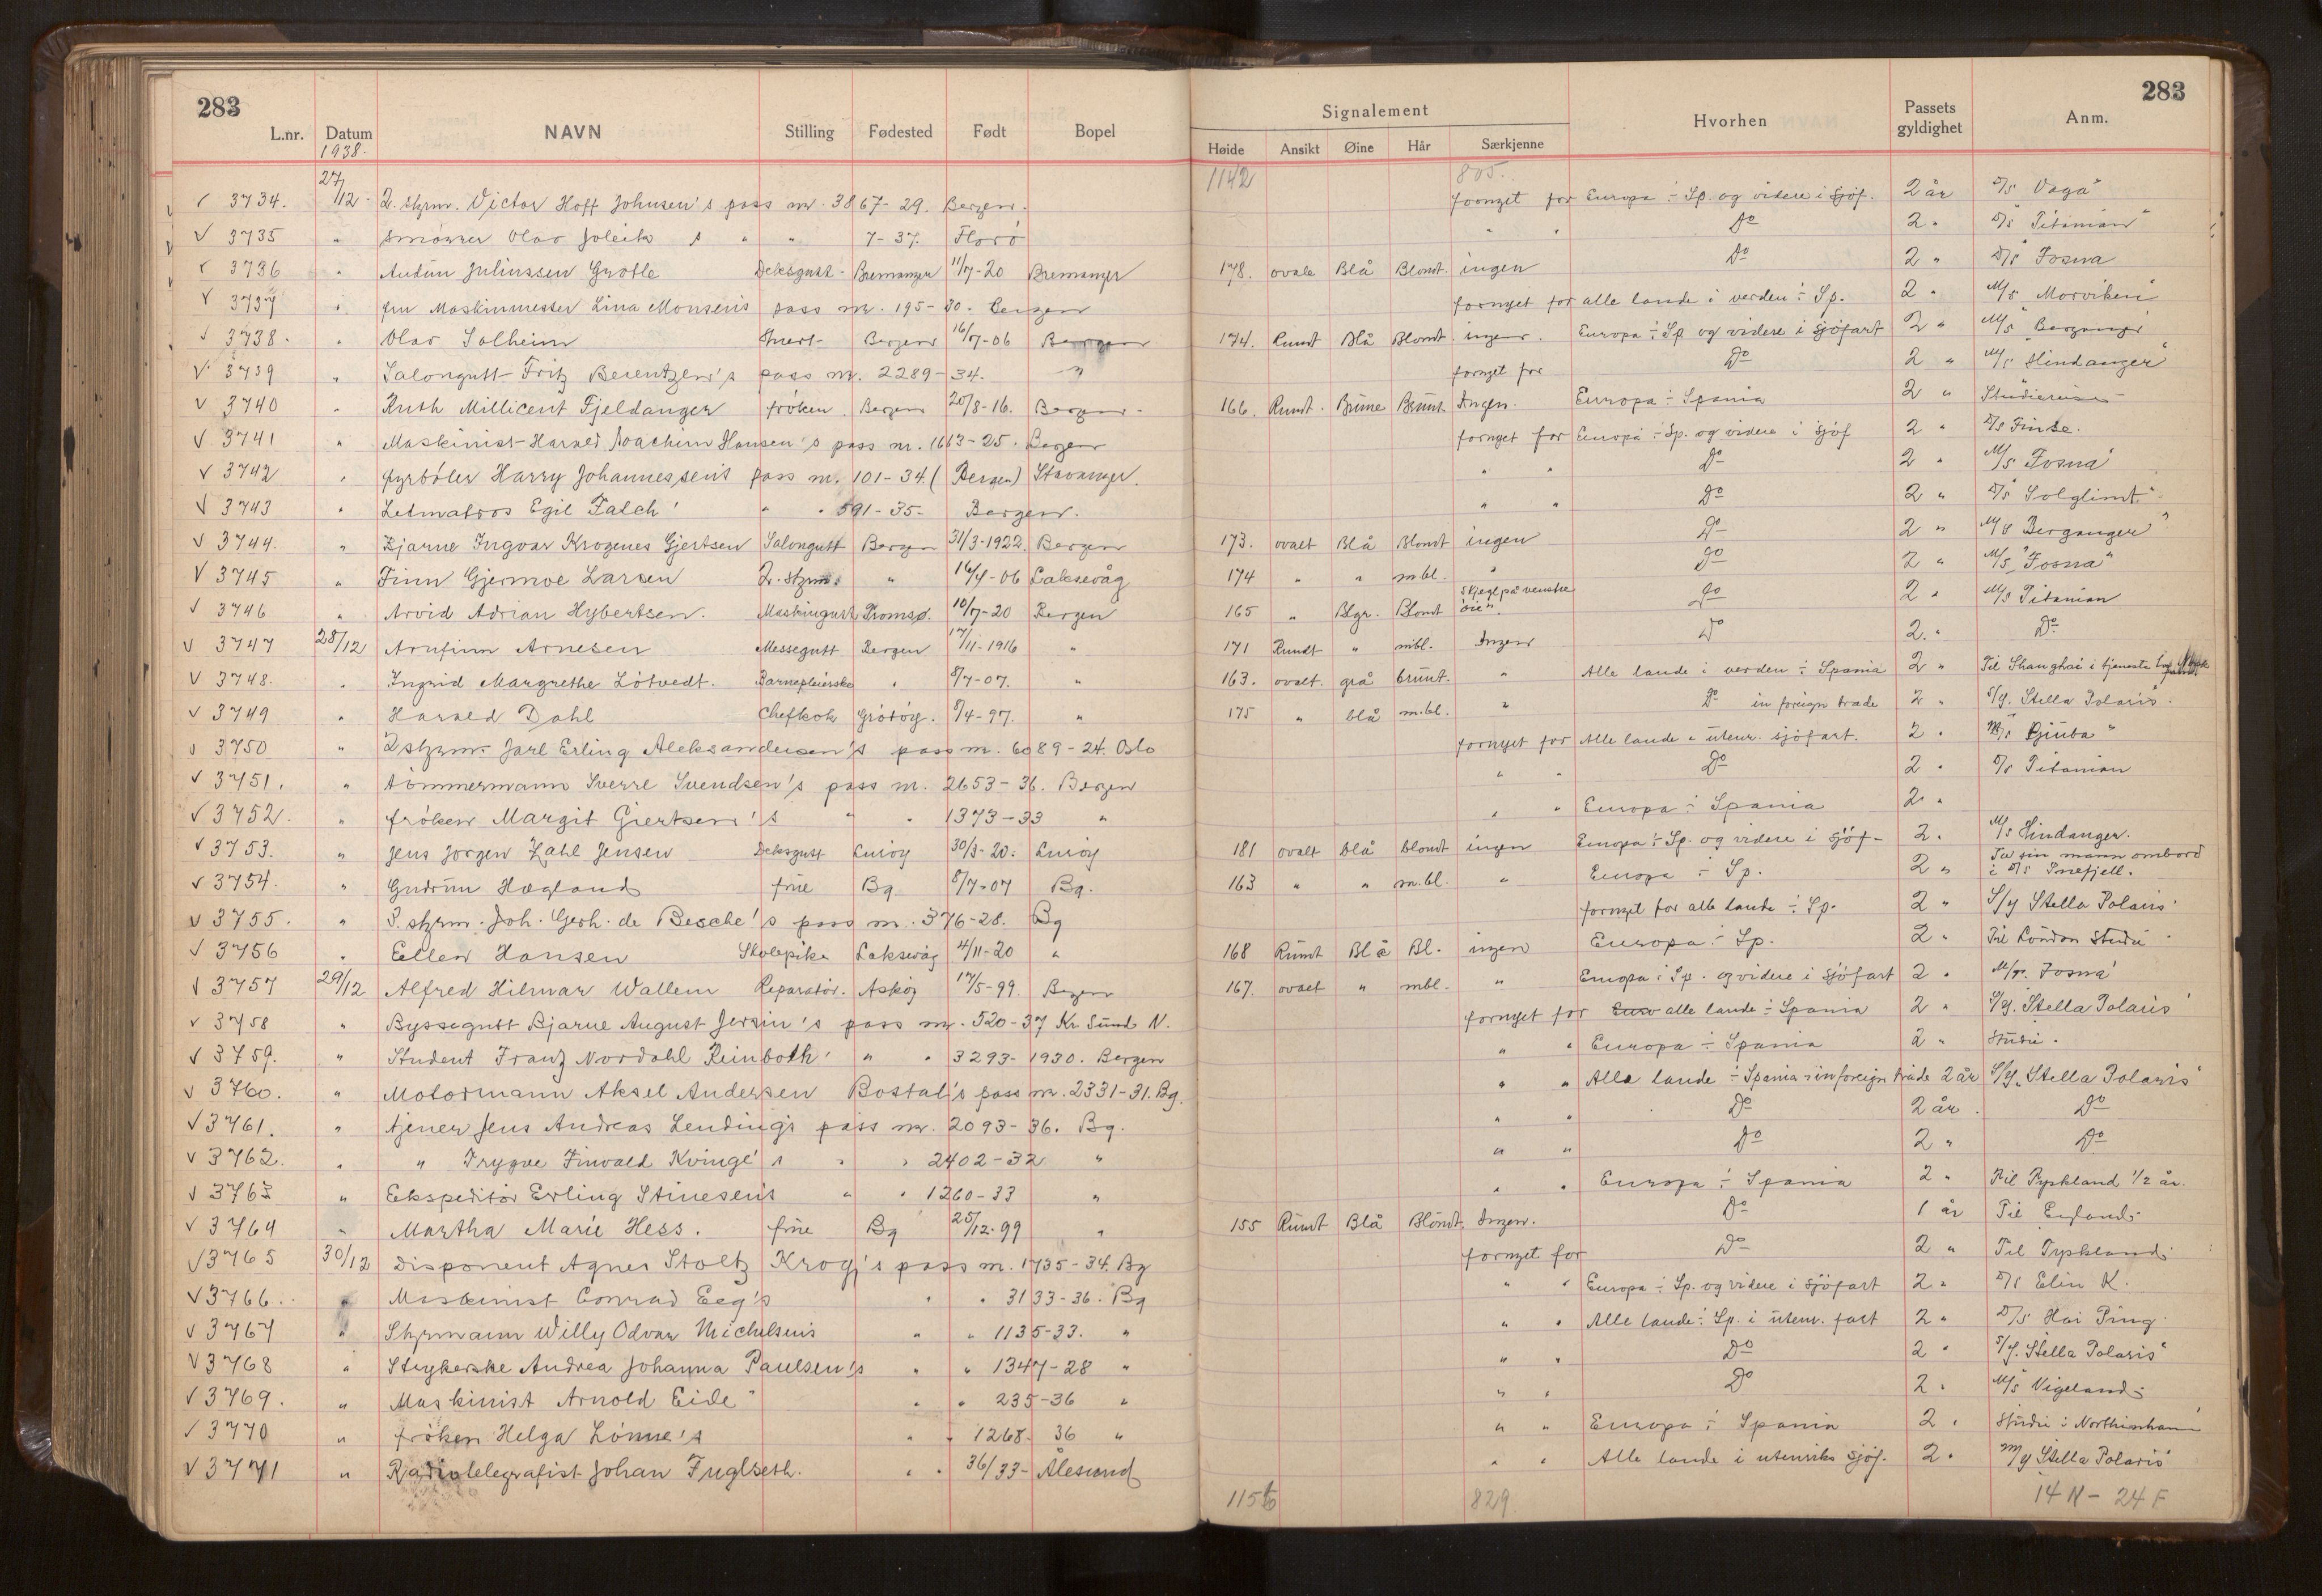 283
283
L.nr. Datum NAVN Stilling Fødested Født Bopel
Signalement Hvorhen Passets gyldighet Anm.
Høide Ansikt Øine Hår Særkjenne
1938.
1142 805.
3734. 27/12. 2. styrm. Victor Hoff Johnsen's pass nr. 3867-29. Bergen. fornyet for Europa ÷ Sp. og videre i sjöf. 2 år D/s Vaga"
3735 " Smörer Olav Joleik s " " 7-37. Florö " " Do 2 " D/s "Titanian"
3736 " Audun Juliussen Grotle Deksgutt- Bremanger 11/7-20 Bremanger 178. ovale Blå Blondt. ingen Do 2 " D/s Fosna
3737 " fru Maskinmester Lina Monsens pass nr. 195-30. Bergen fornyet for alle lande i verden ÷ Sp. 2 " M/s Morviken"
3738. " Olav Solheim Stuert- Bergen 16/7-06 Bergen 174. Rundt Blå Blondt. ingen. Europa ÷ Sp og videre i sjöfart 2 " M/s Berganger
3739 " Salongutt Fritz Berentzen's pass nr. 2289-34. " fornyet for Do 2 " M/s Hindanger"
3740 " Ruth Millicent Fjeldanger fröken. Bergen 20/8-16. Bergen- 166. Rundt. Brune Brunt Ingen. Europa ÷ Spania 2 " Studiereise-
3741 " Maskinist Harald Joachim Hansen's pass nr. 1663-25. Bergen fornyet for Europa ÷ Sp. og videre i sjöf 2 " D/s Finse.
3742 " fyrböter Harry Johannessens pass nr. 101-34. (Bergen) Stavanger. " " Do 2 " M/s Fosna"
3743 " Letmatros Egil Falch' " " 591-35- Bergen. " " Do 2 " D/s Solglimt"
3744. " Bjarne Ingvar Krogenes Gjertsen Salongutt Bergen 31/3-1922. Bergen 173. ovalt Blå Blondt ingen Do 2 " M/s Berganger"
3745 " Finn Gjermoe Larsen 2. styrm. " 16/4-06 Laksevåg 174 " " m.bl. " Do 2 " M/s "Fosna"
3746 " Arvid Adrian Hybertsen. Maskingutt Tromsø. 10/7-20 Bergen 165 " Blgr. Blondt skjegl på venstre öie". Do 2 " M/s Titanian
3747 28/12 Arnfinn Arnesen Messegutt Bergen 17/11-1916 " 171 Rundt " mbl. Ingen Do 2. " Do
3748. " Ingrid Margrethe Lötvedt. Barnepleierske " 8/7-07. " 163. ovalt. grå brunt. " Alle lande i verden ÷ Spania 2 " Til Shanghai i tjeneste
3749 " Harald Dahl Chefkok Grötöy. 9/4-97. " 175 " blå m.bl. " Do in foreign trade 2 " S/y. Stella Polaris".
3750 " 2 styrm. Jarl Erling Aleksandersen's pass nr. 6089-24. Oslo fornyet for Alle lande i utenr. sjöfart. 2 " M/s Djuba"
3751. " tömmermann Sverre Svendsen's pass nr. 2653-36. Bergen " " Do 2 " D/s Titanian
3752. " fröken Margit Giertsen's " " 1373-33 " " " Europa ÷ Spania 2 "
3753. " Jens Jorgen Zahl Jensen Deksgutt Luröy 30/3-20. Luröy 181 ovalt blå blondt ingen Europa ÷ Sp. og videre i sjöf- 2 " M/s Hindanger.
3754. " Gudrun Hægland frue Bg. 8/7-07 Bg. 163 " " m.bl. " Europa ÷ Sp. 2 " Til sin mann ombord i D/s Snefjell.
3755. " 2. styrm. Joh. Gerh. de Besche's pass nr. 376-28. Bg fornyet for alle lande ÷ Sp. 2 " S/y Stella Polaris"
3756 " Ellen Hansen Skolepike Laksevåg 4/11-20 " 168 Rundt Blå Bl. ingen Europa ÷ Sp. 2 " Til London Studie
3757 29/12 Alfred Hilmar Wallem Reparatör. Asköy 17/5-99. Bergen 167. ovalt " mbl. " Europa ÷ Sp. og videre i sjöfart 2 " M/s. Fosna"
3758 " Byssegutt Bjarne August Jersin's pass nr. 520-37 Kr Sund N. fornyet for alle lande ÷ Spania 2 " S/y. Stella Polaris"
3759. " Student Franz Nordahl Reinboth' " " 3293-1930. Bergen " " Europa ÷ Spania 2 " Studie.
3760. " Motormann Aksel Andersen Bostal's pass nr. 2331-31. Bg. " " Alle lande ÷ Spania - in foreign trade 2 år S/y. Stella Polaris"
3761. " tjener Jens Andreas Lendings pass nr. 2093-36. Bg. " " Do 2 år. Do
3762. " " Trygve Finvald Kvinge's " " 2402-32 " " " Do 2 " Do
3763 " Ekspeditör Erling Stinesens " " 1260-33 " " " Europa ÷ Spania 2 " Til Tyskland 1/2 år.
3764 " Martha Marie Hess. frue Bg 25/12-99 " 155 Rundt Blå Blondt. Ingen. Do 1 år Til England-
3765 30/12 Disponent Agnes Stoltz Krog's pass nr. 1735-34. Bg fornyet for Do 2 " Til Tyskland.
3766. " Maskinist Conrad Eeg's " " 3133-36. Bg " " Europa ÷ Sp. og videre i sjöfart 2 " D/s Elin K.
3767 " Styrmann Willy Odvar Michelsens " " 1135-33. " " " Alle lande ÷ Sp. i utenr. fart 2 " D/s Hai Ping.
3768 " Strykerske Andrea Johanna Paulsen's " " 1347-28 " " " Do 2 " S/y. Stella Polaris"
3769. " Maskinist Arnold Eide" " " 235-36 " " " Do 2 " M/s Vigeland-
3770 " fröken Helga Lönne's " " 1268-36 " " " Europa ÷ Spania 2 " Studie i
3771 " Radiotelegrafist Johan Fuglseth. " " 36/33- Ålesund " " Alle lande i utenriks sjöf. 2 " M/y Stella Polaris"
1156 829. 14 N - 24 F